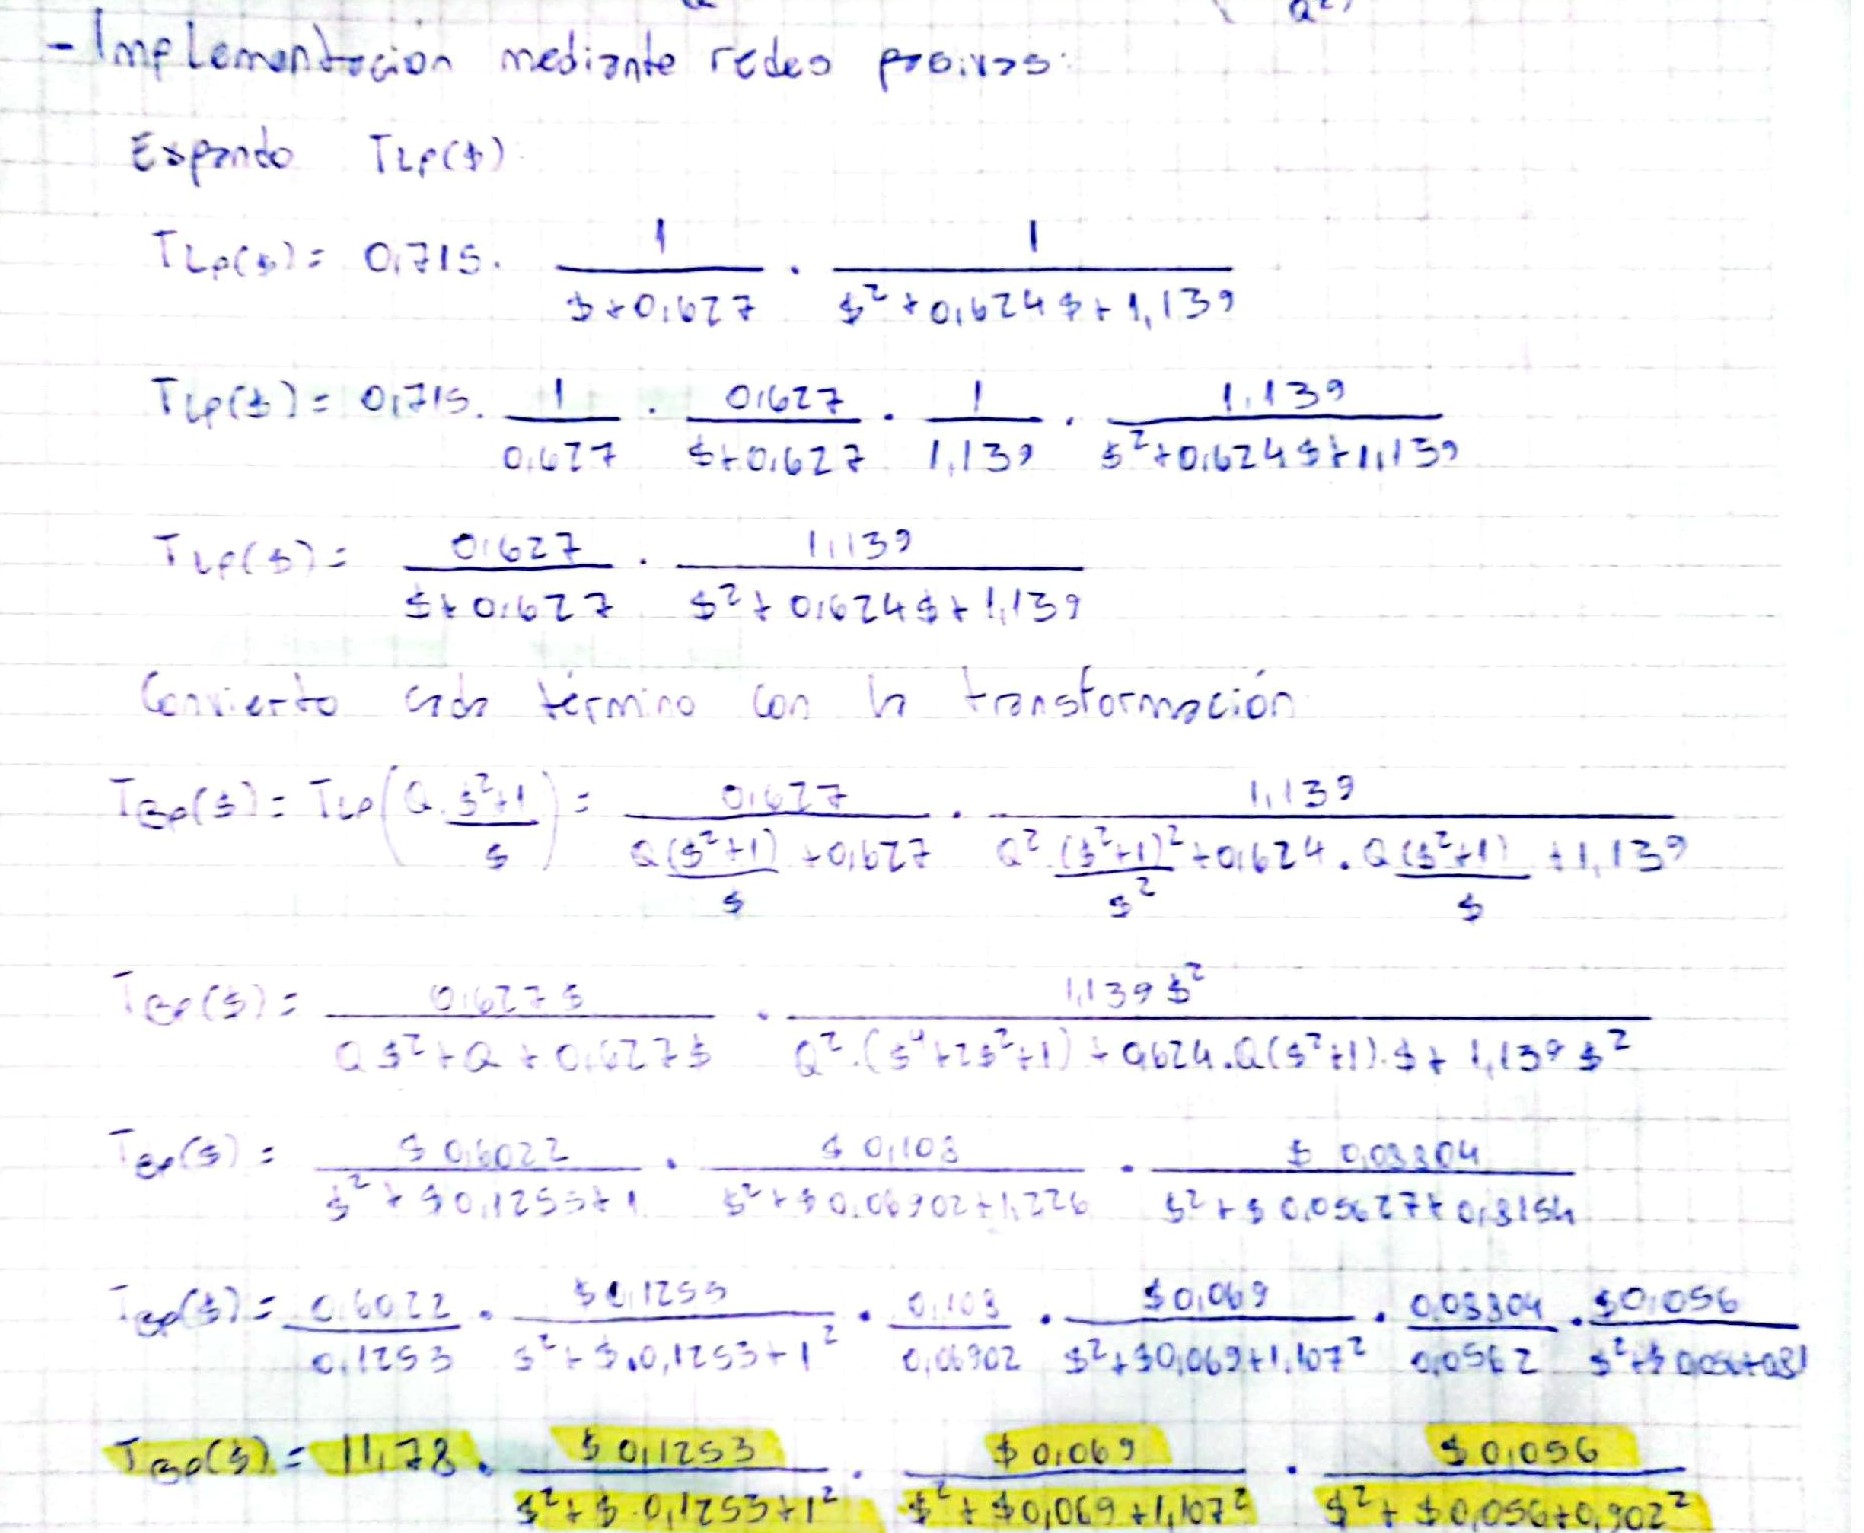 - Implementación mediante redes pasivas:
Expando TLP($)
TLP($) = 0,715 . 1/($+0,627) . 1/($²+0,624$+1,139)
TLP($) = 0,715 . 1/0,627 . 0,627/($+0,627) . 1/1,139 . 1,139/($²+0,624$+1,139)
TLP($) = 0,627/($+0,627) . 1,139/($²+0,624$+1,139)
Convierto cada término con la transformación
TBP($) = TLP(Q.($²+1)/$) = 0,627/(Q($²+1)/$ +0,627) . 1,139/(Q².($²+1)²/$² +0,624.Q($²+1)/$ +1,139)
TBP($) = 0,627$/(Q$²+Q+0,627$) . 1,139$²/(Q².($⁴+2$²+1)+0,624.Q($²+1).$+1,139$²)
TBP($) = $0,6022/($²+$0,1253+1) . $0,108/($²+$0,06902+1,226) . $0,08804/($²+$0,05627+0,8154)
TBP($) = 0,6022/0,1253 . $0,1253/($²+$.0,1253+1²) . 0,108/0,06902 . $0,069/($²+$0,069+1,107²) . 0,08804/0,0562 . $0,056/($²+$0,056+0,81)
TBP($) = 11,78 . $0,1253/($²+$.0,1253+1²) . $0,069/($²+$0,069+1,107²) . $0,056/($²+$0,056+0,902²)